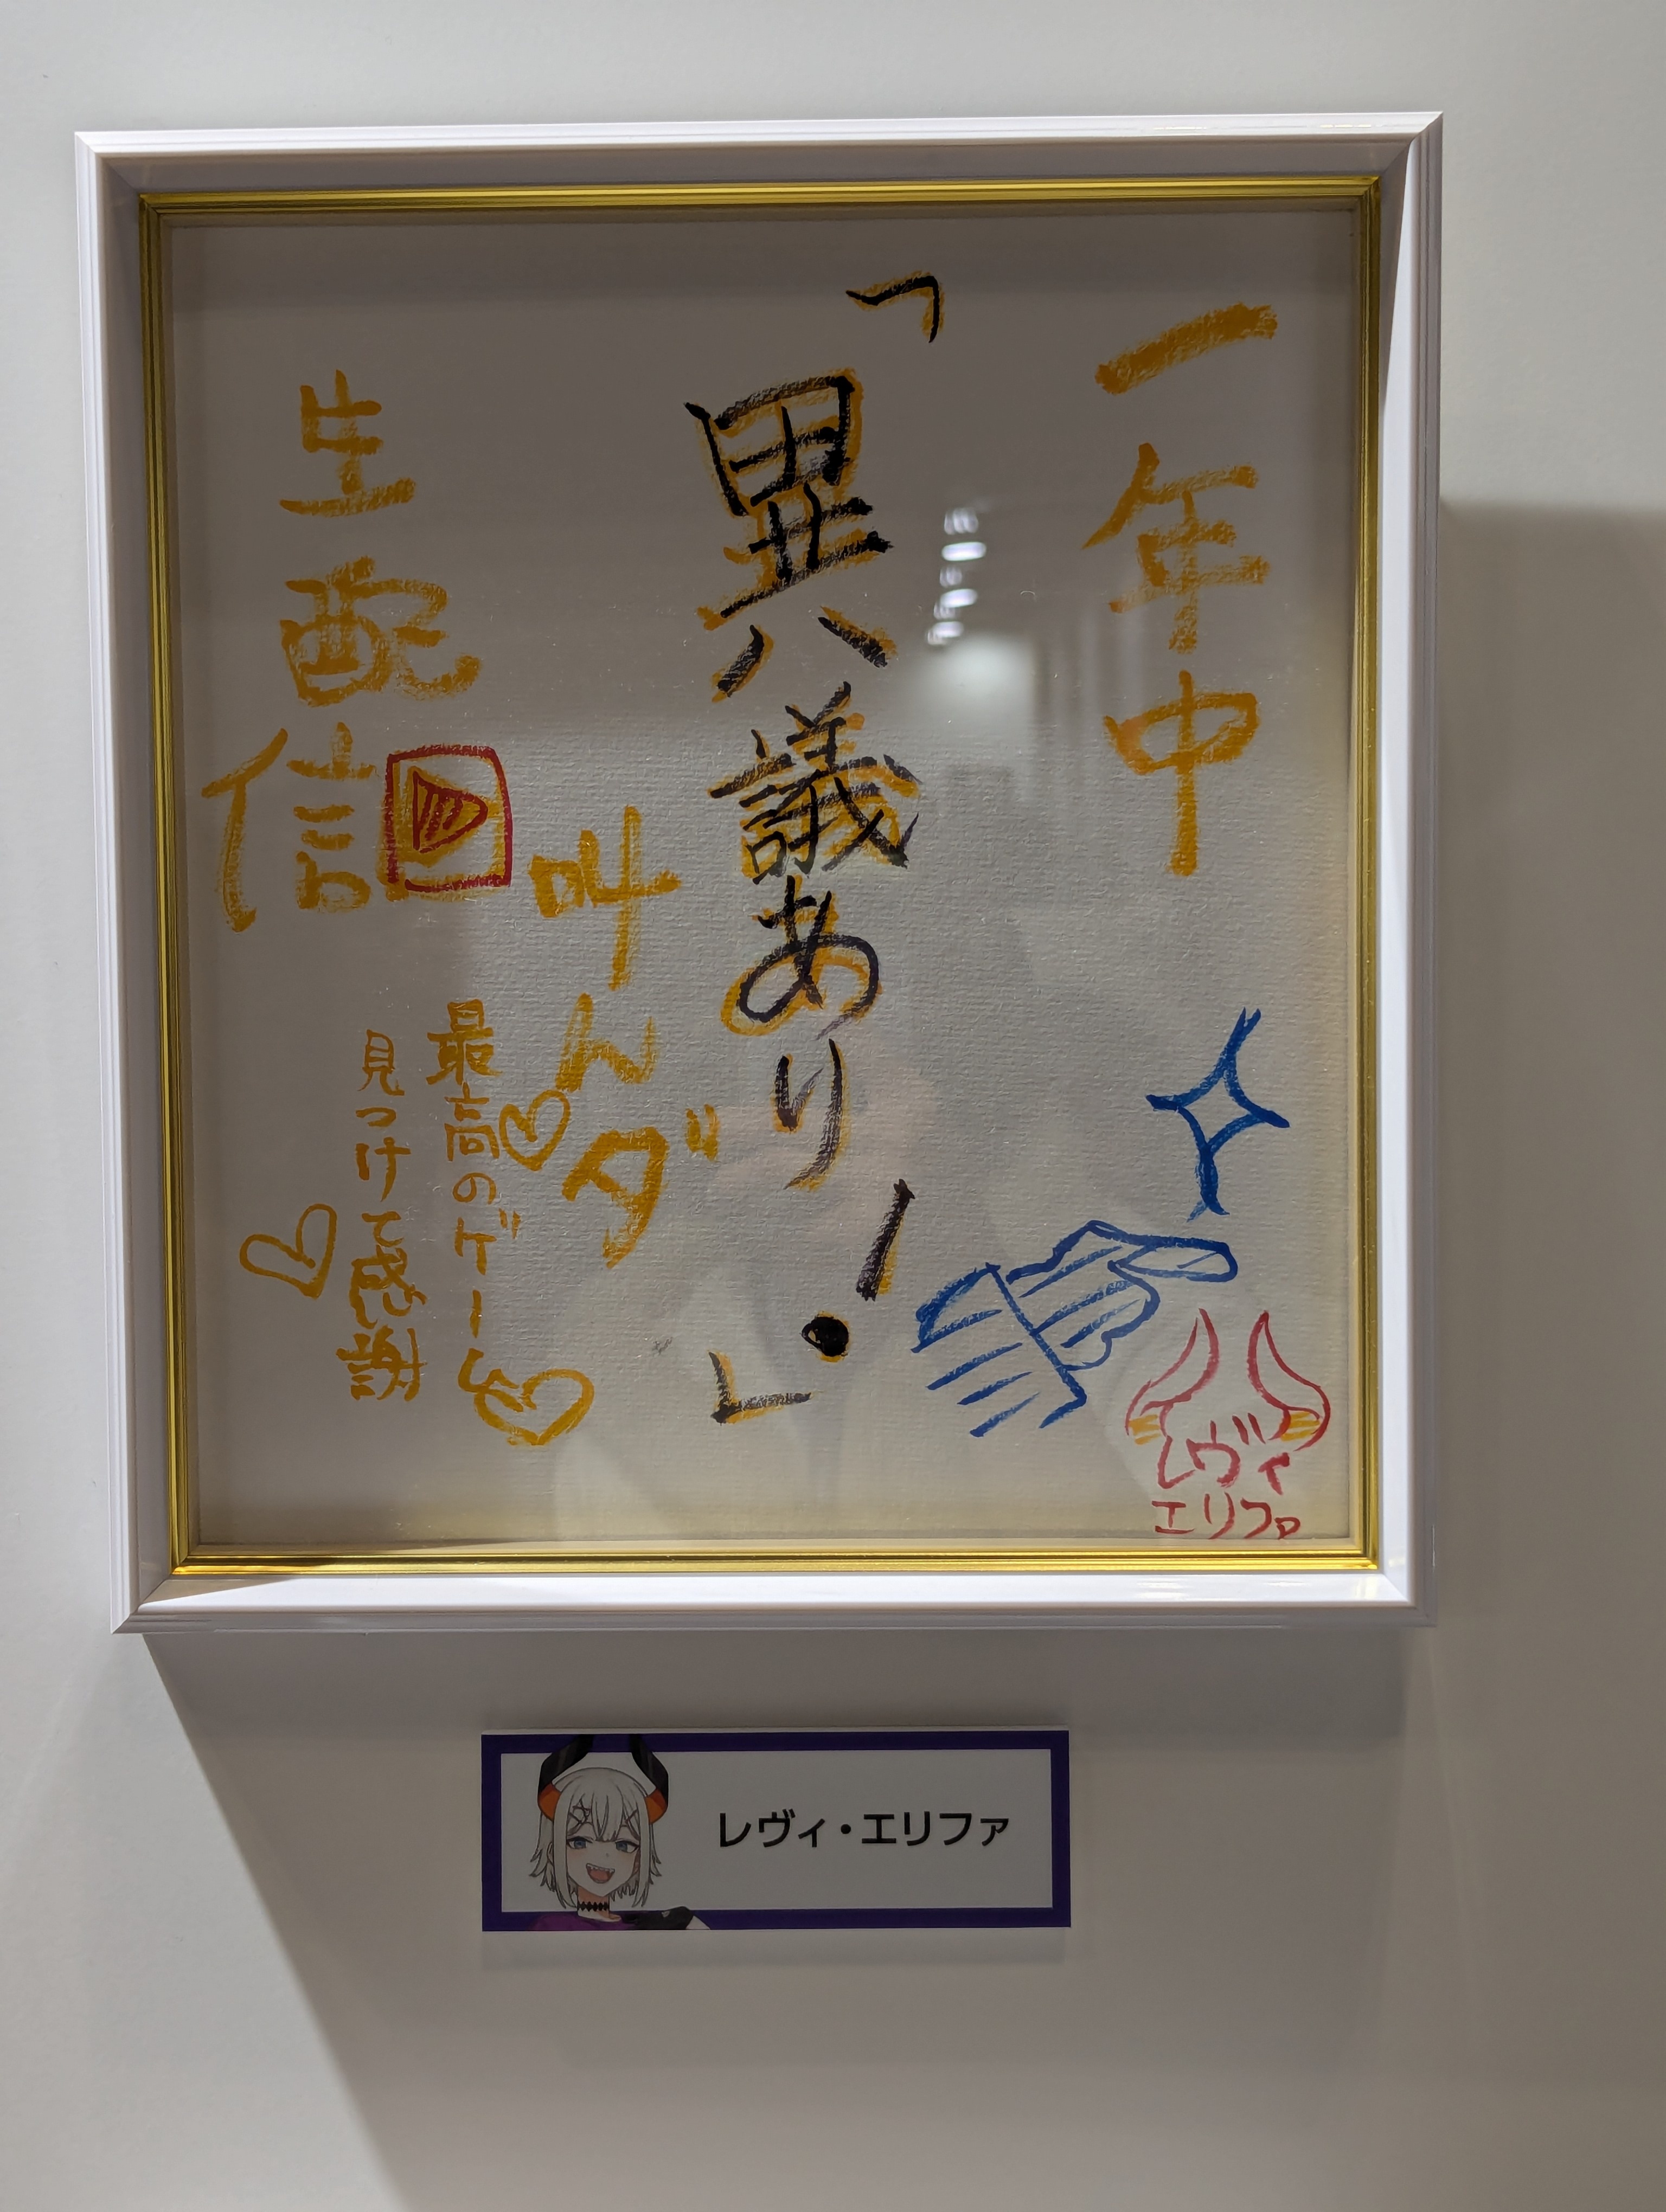 一年中
「異議あり!」
叫んダ
生配信
最高のゲームを
見つけて感謝
レヴィ
エリファ
レヴィ・エリファ